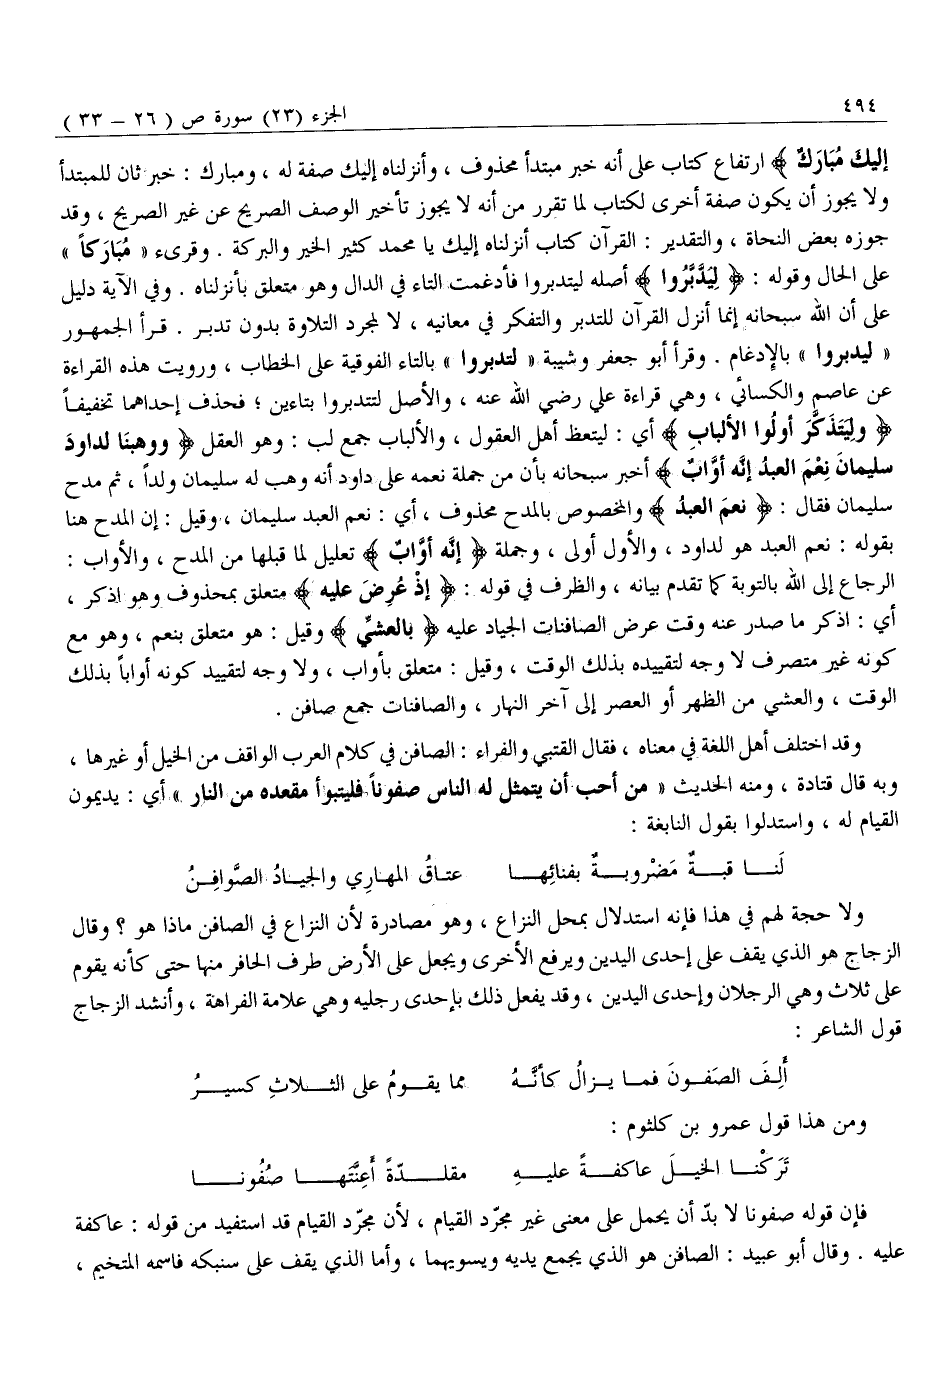 ٤٩٤
الجزء (٢٣) سورة ص ( ٢٦ – ٣٣ )
إليكَ مُبَارَكٌ ﴾ ارتفاع كتاب على أنه خبر مبتدأ محذوف ، وأنزلناه إليك صفة له ، ومبارك : خبر ثان للمبتدأ
ولا يجوز أن يكون صفة أخرى لكتاب لما تقرر من أنه لا يجوز تأخير الوصف الصريح عن غير الصريح ، وقد
جوزه بعض النحاة ، والتقدير : القرآن كتاب أنزلناه إليك يا محمد كثير الخير والبركة . وقرىء « مُبَارَكاً »
على الحال وقوله : ﴿ لِيَدَّبَّرُوا ﴾ أصله ليتدبروا فأدغمت التاء في الدال وهو متعلق بأنزلناه . وفي الآية دليل
على أن الله سبحانه إنما أنزل القرآن للتدبر والتفكر في معانيه ، لا لمجرد التلاوة بدون تدبر . قرأ الجمهور
« ليدبروا » بالإدغام . وقرأ أبو جعفر وشيبة « لتدبروا » بالتاء الفوقية على الخطاب ، ورويت هذه القراءة
عن عاصم والكسائي ، وهي قراءة علي رضي الله عنه ، والأصل لتتدبروا بتاءين ؛ فحذف إحداهما تخفيفاً
﴿ ولِيَتَذَكَّرَ أولُوا الألبابِ ﴾ أي : ليتعظ أهل العقول ، والألباب جمع لب : وهو العقل ﴿ ووهبنَا لداودَ
سليمانَ نِعْمَ العبدُ إنَّه أوَّابٌ ﴾ أخبر سبحانه بأن من جملة نعمه على داود أنه وهب له سليمان ولداً ، ثم مدح
سليمان فقال : ﴿ نعمَ العبدُ ﴾ والمخصوص بالمدح محذوف ، أي : نعم العبد سليمان ، وقيل : إن المدح هنا
بقوله : نعم العبد هو لداود ، والأول أولى ، وجملة ﴿ إنَّه أوَّابٌ ﴾ تعليل لما قبلها من المدح ، والأواب :
الرجاع إلى الله بالتوبة كما تقدم بيانه ، والظرف في قوله : ﴿ إذْ عُرِضَ عليه ﴾ متعلق بمحذوف وهو اذكر ،
أي : اذكر ما صدر عنه وقت عرض الصافنات الجياد عليه ﴿ بالعشيِّ ﴾ وقيل : هو متعلق بنعم ، وهو مع
كونه غير متصرف لا وجه لتقييده بذلك الوقت ، وقيل : متعلق بأواب ، ولا وجه لتقييد كونه أواباً بذلك
الوقت ، والعشي من الظهر أو العصر إلى آخر النهار ، والصافنات جمع صافن .
وقد اختلف أهل اللغة في معناه ، فقال القتبي والفراء : الصافن في كلام العرب الواقف من الخيل أو غيرها ،
وبه قال قتادة ، ومنه الحديث « من أحب أن يتمثل له الناس صفوناً فليتبوأ مقعده من النار » أي : يديمون
القيام له ، واستدلوا بقول النابغة :
لَنـا قبـةٌ مَضْروبـةٌ بفنائِهـا     عتـاقُ المهـارِي والجيـادُ الصَّوافِـنُ
ولا حجة لهم في هذا فإنه استدلال بمحل النزاع ، وهو مصادرة لأن النزاع في الصافن ماذا هو ؟ وقال
الزجاج هو الذي يقف على إحدى اليدين ويرفع الأخرى ويجعل على الأرض طرف الحافر منها حتى كأنه يقوم
على ثلاث وهي الرجلان وإحدى اليدين ، وقد يفعل ذلك بإحدى رجليه وهي علامة الفراهة ، وأنشد الزجاج
قول الشاعر :
أَلِفَ الصَفـونَ فمـا يـزالُ كأنَّـهُ     مما يقـومُ على الثـلاثِ كسيـرُ
ومن هذا قول عمرو بن كلثوم :
تَرَكْنـا الخيـلَ عاكفـةً عليـهِ     مقلـدّةً أَعِنَّتَهـا صُفُونـا
فإن قوله صفونا لا بدّ أن يحمل على معنى غير مجرّد القيام ، لأن مجرّد القيام قد استفيد من قوله : عاكفة
عليه . وقال أبو عبيد : الصافن هو الذي يجمع يديه ويسويهما ، وأما الذي يقف على سنبكه فاسمه المتخيم ،